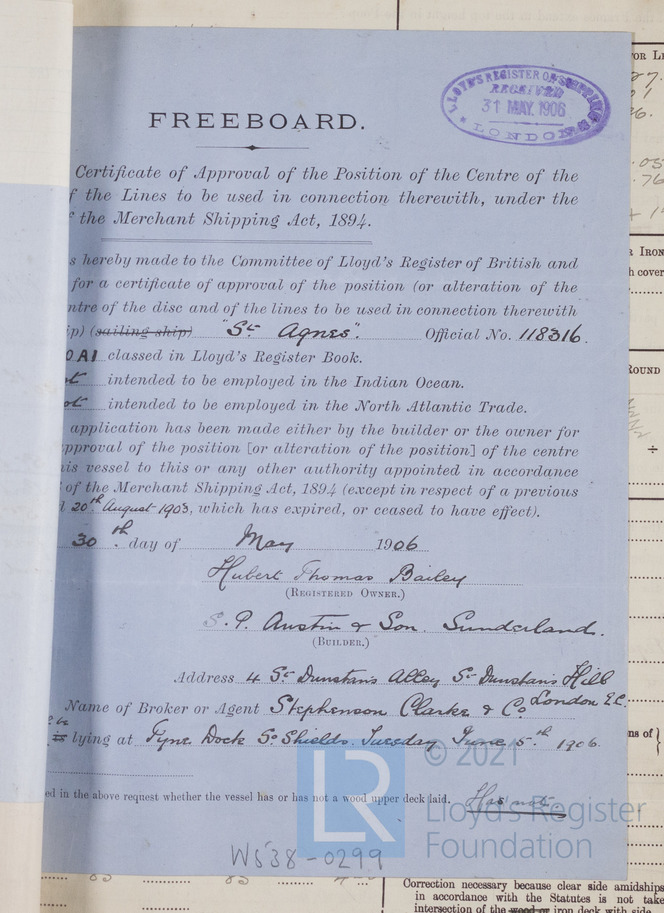 LLOYD'S REGISTER OF SHIPPING
RECEIVED
31 MAY. 1906
LONDON
FREEBOARD.
Certificate of Approval of the Position of the Centre of the
f the Lines to be used in connection therewith, under the
f the Merchant Shipping Act, 1894.
s hereby made to the Committee of Lloyd's Register of British and
for a certificate of approval of the position (or alteration of the
ntre of the disc and of the lines to be used in connection therewith
ip) (sailing ship) "St Agnes". Official No. 118316.
0 A1 classed in Lloyd's Register Book.
ot intended to be employed in the Indian Ocean.
ot intended to be employed in the North Atlantic Trade.
application has been made either by the builder or the owner for
approval of the position [or alteration of the position] of the centre
his vessel to this or any other authority appointed in accordance
of the Merchant Shipping Act, 1894 (except in respect of a previous
d 20th August 1903, which has expired, or ceased to have effect).
30th day of May 1906
Hubert Thomas Bailey
(REGISTERED OWNER.)
S. P. Austin & Son. Sunderland.
(BUILDER.)
Address 4 St Dunstan's Alley St Dunstan's Hill
London E.C.
Name of Broker or Agent Stephenson Clarke & Co
be
is lying at Tyne Dock So Shields. Tuesday June 5th 1906.
ed in the above request whether the vessel has or has not a wood upper deck laid. Has not.
© 2021
LR
Lloyd's Register
Foundation
W538-0299
IRON
h cover
ROUND
÷
ns of
Correction necessary because clear side amidships
in accordance with the Statutes is not take
intersection of the wood or iron deck with side